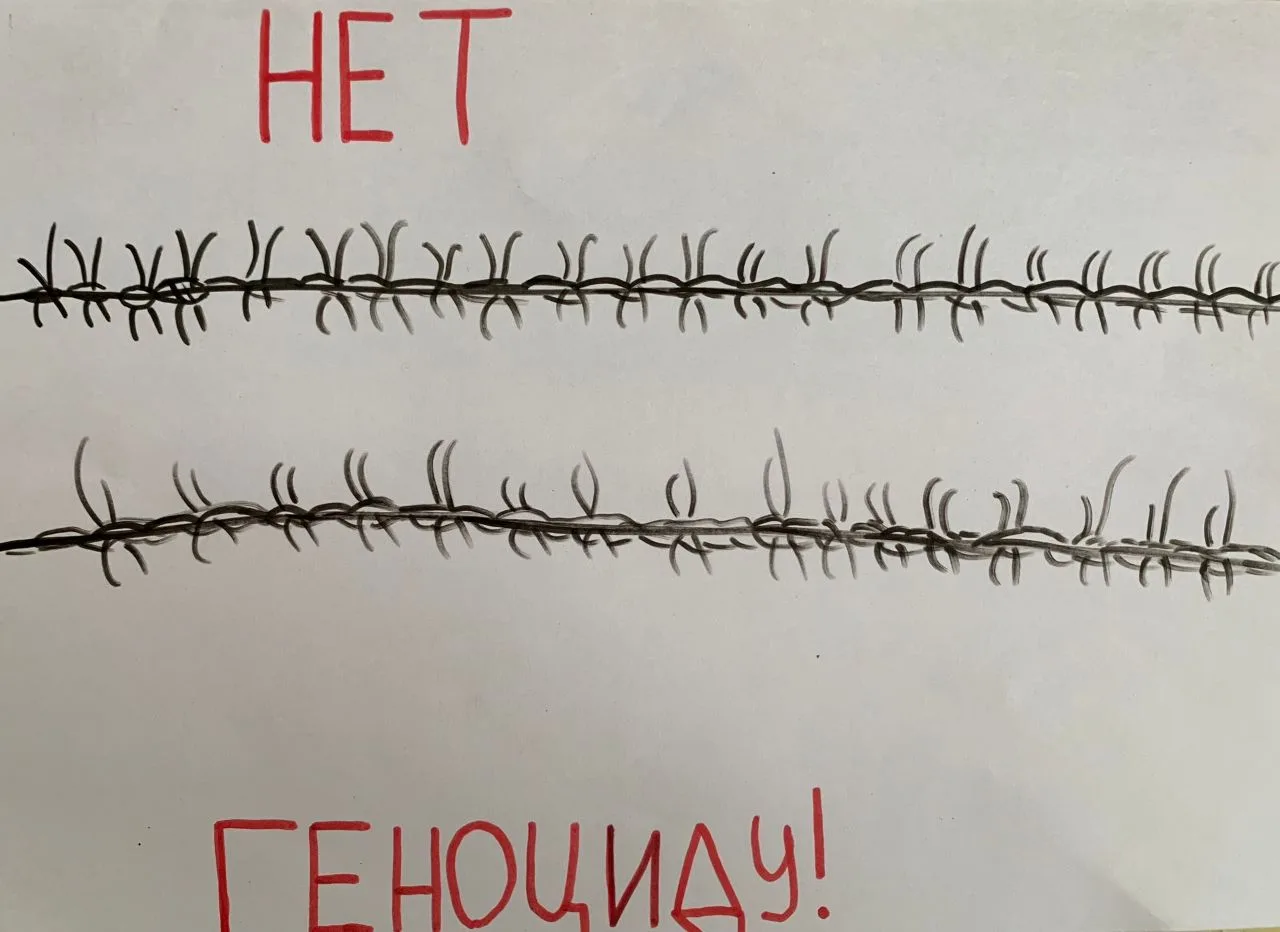 НЕТ
ГЕНОЦИДУ!